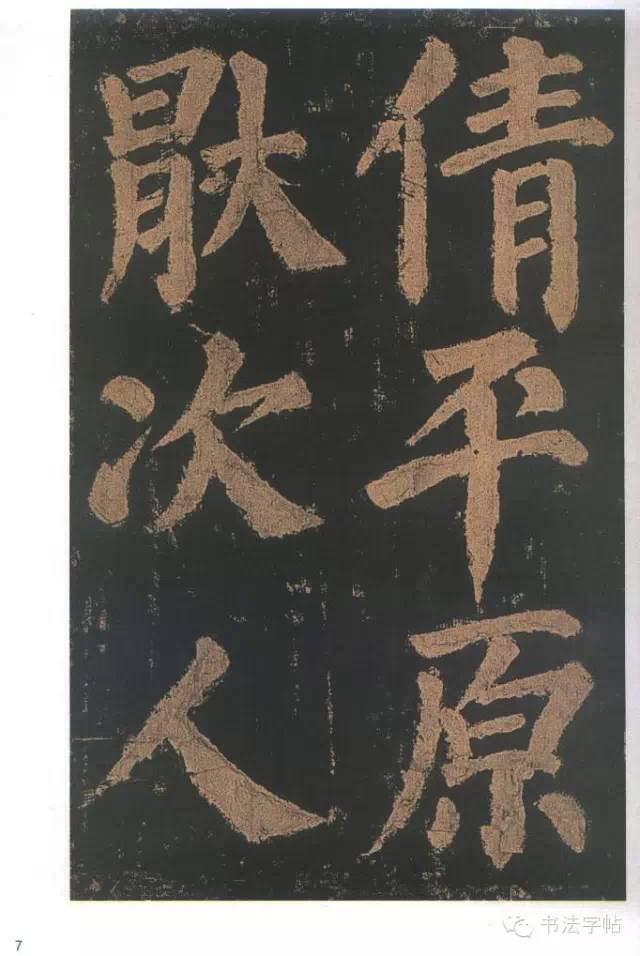 倩平原
猒次人
书法字帖
7